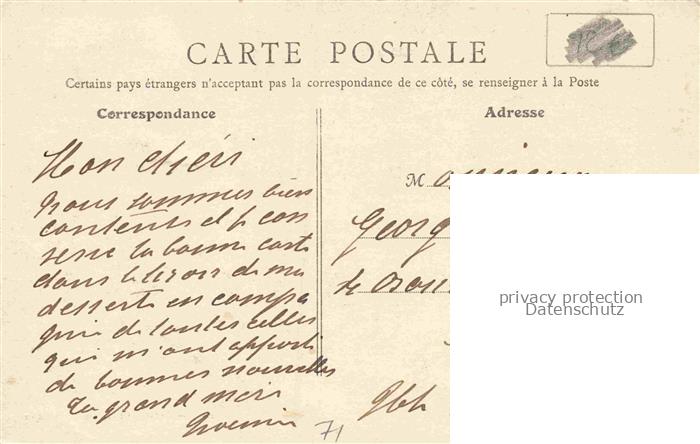 CARTE POSTALE
Certains pays étrangers n'acceptant pas la correspondance de ce côté, se renseigner à la Poste
Correspondance
Adresse
Mon chéri
nous sommes bien
contents et je con
serve ta bonne carte
dans le tiroir de ma
desserte en compa
gnie de toutes celles
qui m'ont apporté
de bonnes nouvelles
Ta grand mère
Monsieur
Georg
71
privacy protection
Datenschutz